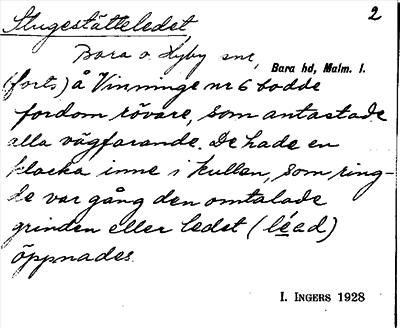 Stugestätteledet, 2
Bara o. Hyby snr,
Bara hd, Malm. l.
(forts) å Vinninge nr 6 bodde
fordom rövare, som antastade
alla vägfarande. De hade en
klocka inne i kullen, som ring-
de var gång den omtalade
grinden eller ledet (léad)
öppnades.
I. INGERS 1928